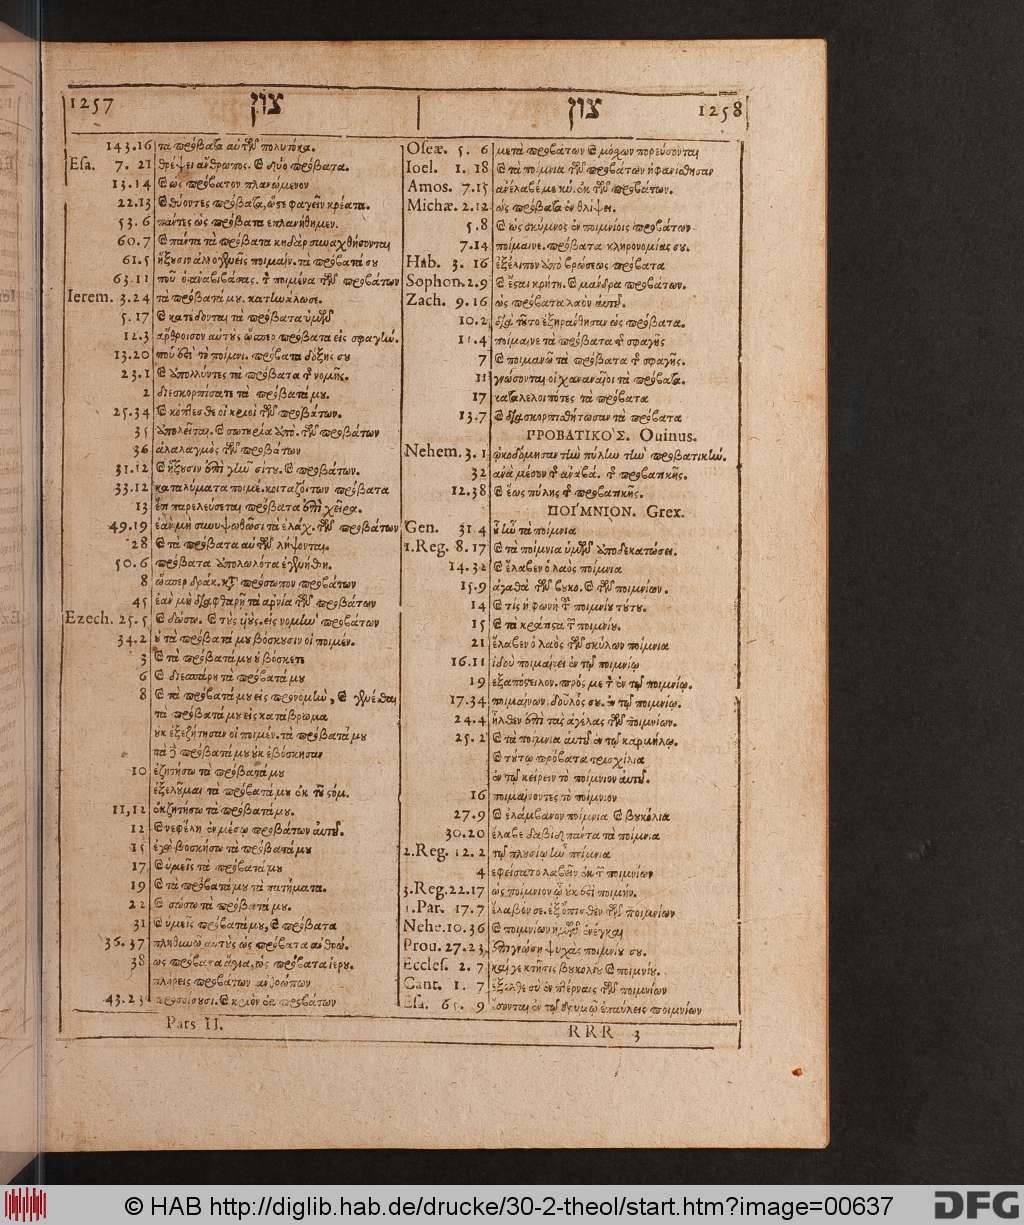 1257 צון
143.16 τὰ πρόβατα αὐτῶν πολυτόκα.
Esa. 7. 21 θρέψει ἄνθρωπος. καὶ δύο πρόβατα.
13.14 καὶ ὡς πρόβατον πλανώμενον
22.13 καὶ θύοντες πρόβατα, ὥστε φαγεῖν κρέατα.
53. 6 πάντες ὡς πρόβατα ἐπλανήθημεν.
60. 7 καὶ πάντα τὰ πρόβατα κηδὰρ συναχθήσονται
61. 5 ἥξουσιν ἀλλογενεῖς ποιμαίν. τὰ πρόβατά σου
63.11 ποῦ ὁ ἀναβιβάσας. τ ποιμένα τῶν προβάτων
Ierem. 3.24 τὰ πρόβατά μου. κατανάλωσε.
5. 17 καὶ κατέδονται τὰ πρόβατα ὑμῶν
12.3 ἄθροισον αὐτοὺς ὥσπερ πρόβατα εἰς σφαγήν.
13.20 ποῦ ἐστὶ τὸ ποίμνι. πρόβατα δόξης σου
23. 1 καὶ ἀπολλύντες τὰ πρόβατα τ νομῆς.
2 διεσκορπίσατε τὰ πρόβατά μου.
25.34 καὶ κόπτεσθε οἱ κριοὶ τῶν προβάτων.
35 ἀπολεῖται. καὶ σωτηρία ἀπὸ. τῶν προβάτων
36 ἀλαλαγμὸς τῶν προβάτων
31.12 καὶ ἥξουσιν ἐπὶ γῆν σίτου. καὶ προβάτων.
33.12 καταλύματα ποιμέ. κοιταζόντων πρόβατα
13 ἔτι παρελεύσεται πρόβατα ἐπὶ χεῖρα.
49.19 ἐὰν μὴ συμψηθῶσι τὰ ἐλάχ. τῶν προβάτων
28 καὶ τὰ πρόβατα αὐτῶν λήψονται.
50. 6 πρόβατα ἀπολωλότα ἐγενήθη.
8 ὥσπερ δράκ. κτ πρόσωπον προβάτων
45 ἐὰν μὴ διαφθαρῇ τὰ ἀρνία τῶν προβάτων
Ezech. 25. 5 καὶ δώσω. καὶ τοὺς υἱοὺς. εἰς νομὴν προβάτων
34. 2 οὐ τὰ πρόβατά μου βόσκουσιν οἱ ποιμέν.
3 καὶ τὰ πρόβατά μου οὐ βόσκετε
6 καὶ διεσπάρη τὰ πρόβατά μου
8 καὶ τὰ πρόβατά μου εἰς προνομὴν, καὶ γενέσθαι
τὰ πρόβατά μου εἰς κατάβρωμα
οὐκ ἐξεζήτησαν οἱ ποιμέν. τὰ πρόβατά μου
τὰ δὲ πρόβατά μου οὐκ ἐβόσκησαν
10 ἐκζητήσω τὰ πρόβατά μου
ἐξελοῦμαι τὰ πρόβατά μου ἐκ τοῦ στόμ.
11,12 ἐκζητήσω τὰ πρόβατά μου.
12 καὶ νεφέλη ἐν μέσῳ προβάτων αὐτοῦ.
15 ἐγὼ βοσκήσω τὰ πρόβατά μου
17 καὶ ὑμεῖς τὰ πρόβατά μου
19 καὶ τὰ πρόβατά μου τὰ πατήματα.
22 καὶ σώσω τὰ πρόβατά μου.
31 καὶ ὑμεῖς πρόβατά μου, καὶ πρόβατα
36. 37 πληθυνῶ αὐτοὺς ὡς πρόβατα ἀνθρώ.
38 ὡς πρόβατα ἅγια, ὡς πρόβατα ἱερου.
πλήρεις προβάτων ἀνθρώπων
43. 23 προσοίσουσι. καὶ κριὸν ἐκ προβάτων
Pars II.
צון 1258
Oseæ. 5. 6 μετὰ προβάτων καὶ μόσχων πορεύσονται
Ioel. 1. 18 καὶ τὰ ποίμνια τῶν προβάτων ἠφανίσθησαν
Amos. 7.15 ἀνέλαβέ με κύ. ἐκ τῶν προβάτων.
Michæ. 2.12 ὡς πρόβατα ἐν θλίψει.
5. 8 καὶ ὡς σκύμνος ἐν ποιμνίοις προβάτων
7.14 ποίμαινε. πρόβατα κληρονομίας σου.
Hab. 3. 16 ἐξέλιπον ἀπὸ βρώσεως πρόβατα
Sophon. 2. 9 καὶ ἔσται κρήτη. καὶ μάνδρα προβάτων.
Zach. 9. 16 ὡς πρόβατα λαὸν αὐτοῦ.
10. 2 διὰ τοῦτο ἐξηράνθησαν ὡς πρόβατα.
11.4 ποίμαινε τὰ πρόβατα τ σφαγῆς
7 καὶ ποιμανῶ τὰ πρόβατα τ σφαγῆς.
11 γνώσονται οἱ χαναναῖοι τὰ πρόβατα.
17 καταλελοιπότες τὰ πρόβατα
13. 7 καὶ διασκορπισθήτωσαν τὰ πρόβατα
ΠΡΟΒΑΤΙΚΟΣ. Ouinus.
Nehem. 3. 1 ᾠκοδόμησαν τὴν πύλην τὴν προβατικήν.
32 ἀνὰ μέσον τ ἀναβά. τ προβατικῆς.
12.38 καὶ ἕως πύλης τ προβατικῆς.
ΠΟΙΜΝΙΟΝ. Grex.
Gen. 31 4 οὗ ἦν τὰ ποίμνια
1. Reg. 8. 17 καὶ τὰ ποίμνια ὑμῶν ἀποδεκατώσει.
14. 32 καὶ ἔλαβεν ὁ λαὸς ποίμνια
15. 9 ἀγαθὰ τῶν βουκο. καὶ τῶν ποιμνίων.
14 καὶ τίς ἡ φωνὴ τ ποιμνίου τούτου.
15 καὶ τὰ κράτιστα τ ποιμνίου.
21 ἔλαβεν ὁ λαὸς τῶν σκύλων ποίμνια
16.11 ἰδοὺ ποιμαίνει ἐν τῷ ποιμνίῳ
19 ἐξαπόστειλον. πρός με τ ἐν τῷ ποιμνίῳ.
17.34 ποιμαίνων. δοῦλός σου. ἐν τῷ ποιμνίῳ.
24. 4 ἦλθεν ἐπὶ τὰς ἀγέλας τῶν ποιμνίων.
25. 2 καὶ τὰ ποίμνια αὐτοῦ ἐν τῷ καρμήλῳ.
καὶ τούτῳ πρόβατα τρισχίλια
ἐν τῷ κείρειν τὸ ποίμνιον αὐτοῦ.
16 ποιμαίνοντες τὸ ποίμνιον
27. 9 καὶ ἐλάμβανον ποίμνια καὶ βουκόλια
30.20 ἔλαβε δαβὶδ πάντα τὰ ποίμνια
2. Reg. 12. 2 τῷ πλουσίῳ ἦν ποίμνια
4 ἐφείσατο λαβεῖν ἐκ τ ποιμνίων
3. Reg. 22. 17 ὡς ποίμνιον ᾧ οὐκ ἐστὶ ποιμήν.
1. Par. 17. 7 ἔλαβόν σε. ἐξόπισθεν τῶν ποιμνίων
Nehe. 10. 36 καὶ ποιμνίων ἡμῶν ἐνέγκαι
Prou. 27. 23 ἐπιγνώσῃ ψυχὰς ποιμνίου σου.
Eccles. 2. 7 καίγε κτῆσις βουκολίου καὶ ποιμνίου.
Cant. 1. 7 ἔξελθε σὺ ἐν πτέρναις τῶν ποιμνίων
Esa. 65. 9 ἔσονται ἐν τῷ δρυμῷ ἐπαύλεις ποιμνίων
RRR 3
© HAB http://diglib.hab.de/drucke/30-2-theol/start.htm?image=00637
DFG